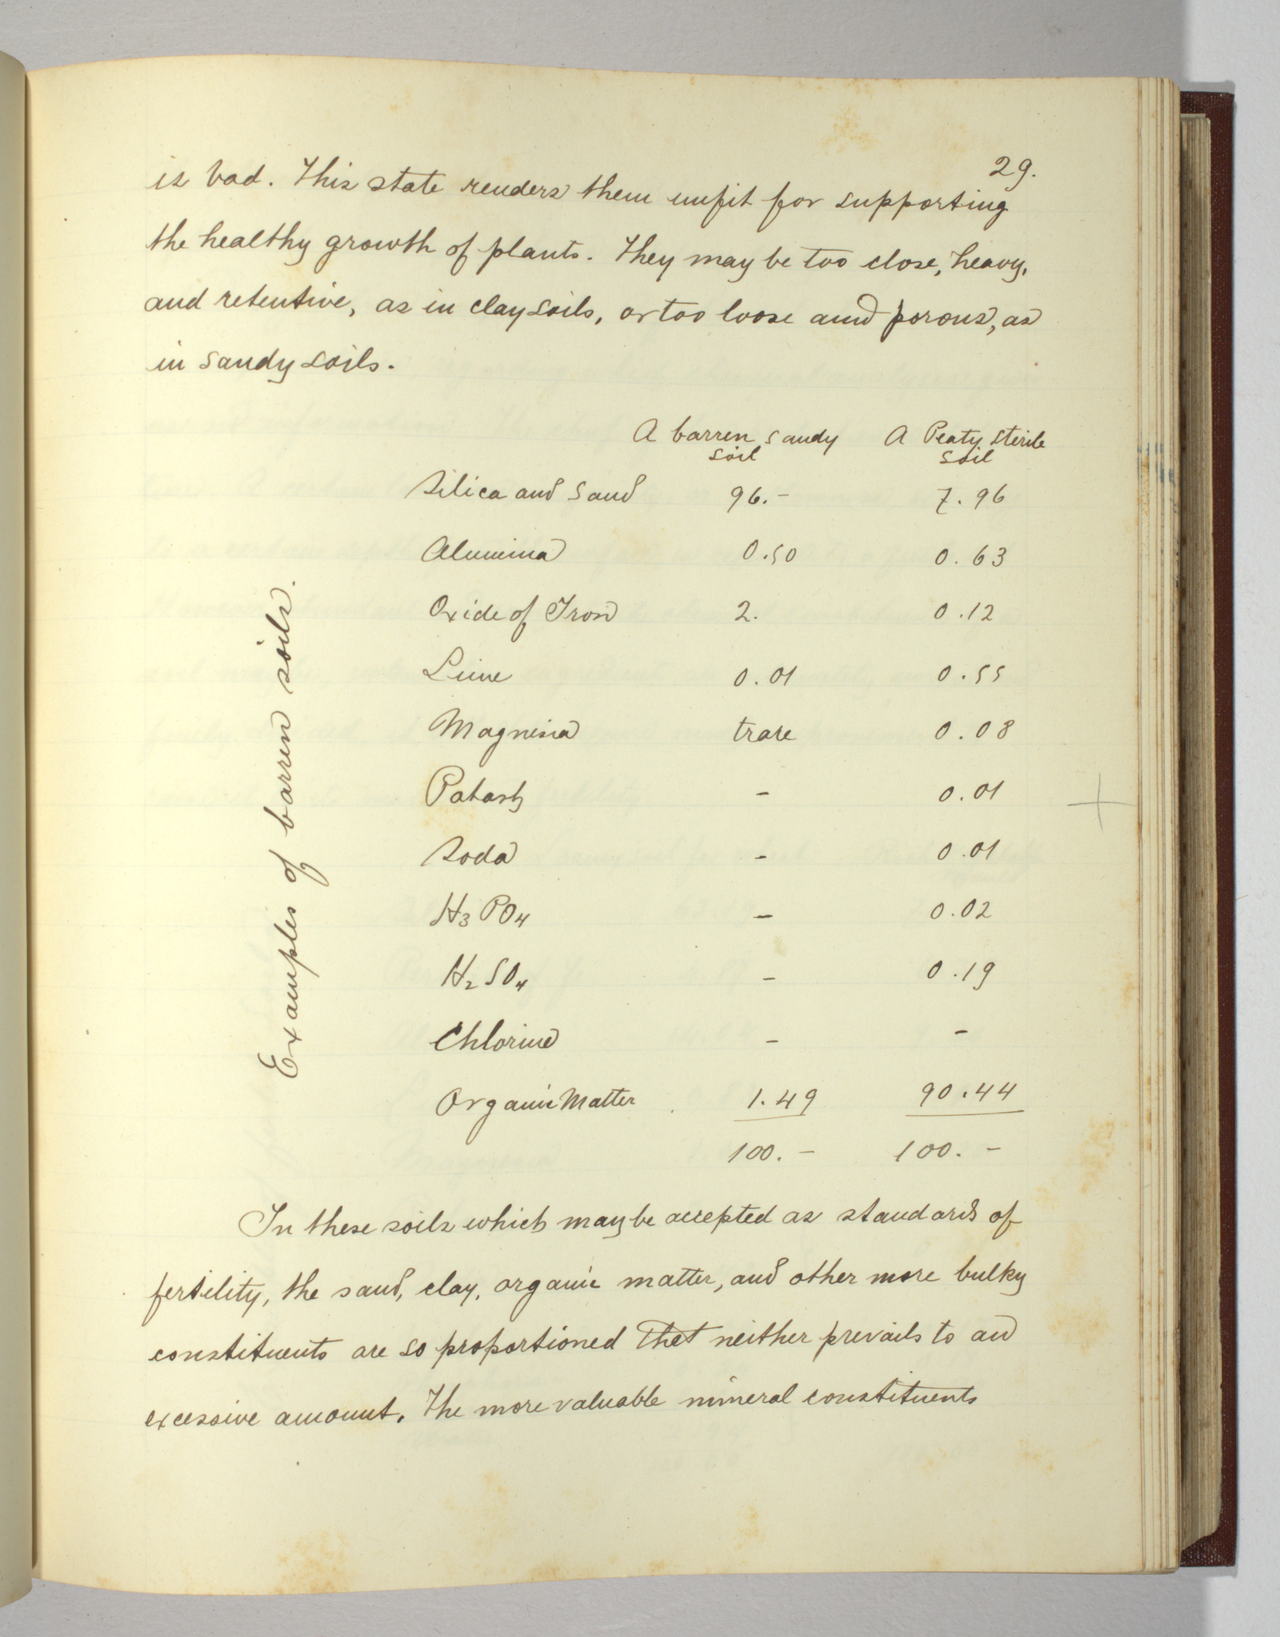 29.
is bad. This state renders them unfit for supporting
the healthy growth of plants. They may be too close, heavy,
and retentive, as in clay soils, or too loose and porous, as
in sandy soils.
A barren sandy soil A Peaty sterile soil
Silica and sand 96.- 7.96
Alumina 0.50 0.63
Oxide of Iron 2. 0.12
Lime 0.01 0.55
Magnesia trace 0.08
Potash - 0.01
Soda - 0.01
H3PO4 - 0.02
H2SO4 - 0.19
Chlorine - -
Organic Matter 1.49 90.44
100.- 100.-
Examples of barren soils.
In these soils which may be accepted as standards of
fertility, the sand, clay, organic matter, and other more bulky
constituents are so proportioned that neither prevails to an
excessive amount. The more valuable mineral constituents